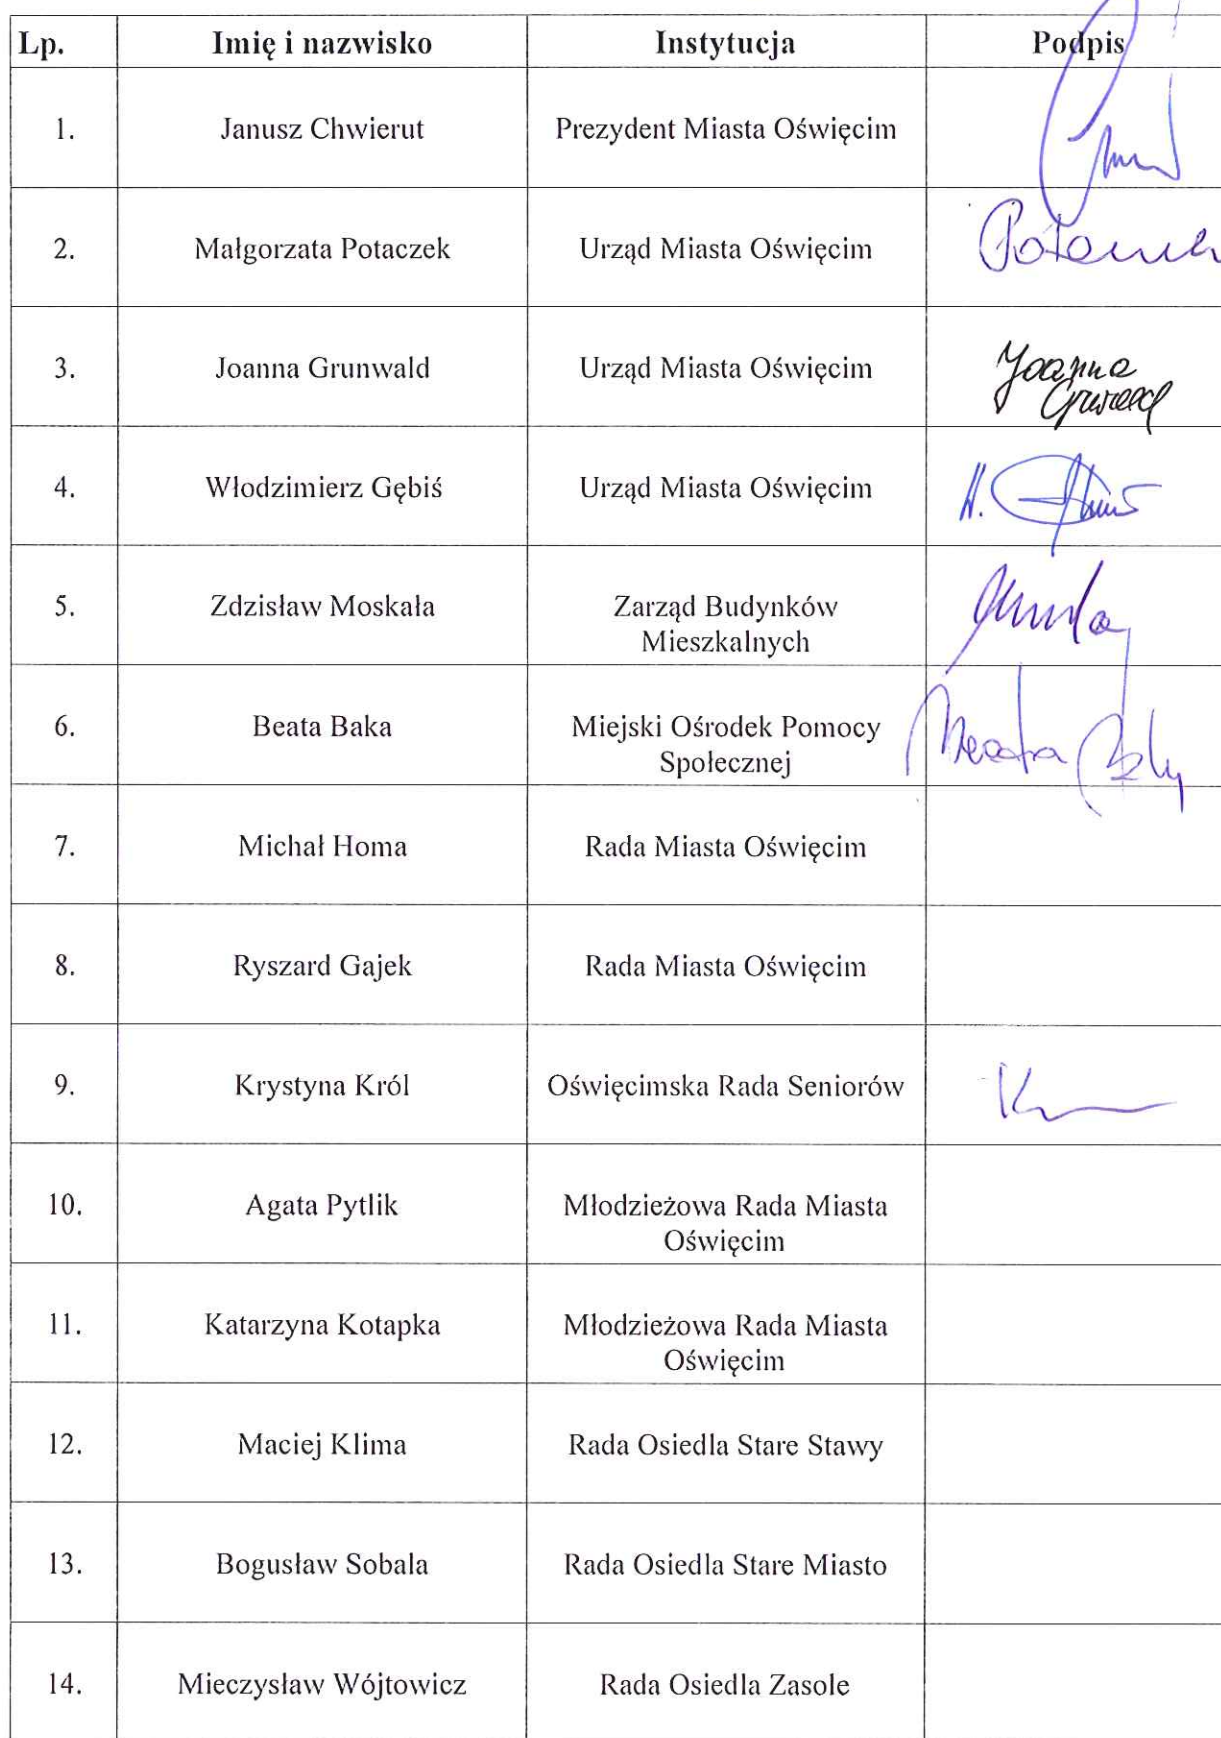 Lp. Imię i nazwisko Instytucja Podpis
1. Janusz Chwierut Prezydent Miasta Oświęcim
2. Małgorzata Potaczek Urząd Miasta Oświęcim
3. Joanna Grunwald Urząd Miasta Oświęcim Joanna
4. Włodzimierz Gębiś Urząd Miasta Oświęcim
5. Zdzisław Moskała Zarząd Budynków
Mieszkalnych
6. Beata Baka Miejski Ośrodek Pomocy
Społecznej
7. Michał Homa Rada Miasta Oświęcim
8. Ryszard Gajek Rada Miasta Oświęcim
9. Krystyna Król Oświęcimska Rada Seniorów
10. Agata Pytlik Młodzieżowa Rada Miasta
Oświęcim
11. Katarzyna Kotapka Młodzieżowa Rada Miasta
Oświęcim
12. Maciej Klima Rada Osiedla Stare Stawy
13. Bogusław Sobala Rada Osiedla Stare Miasto
14. Mieczysław Wójtowicz Rada Osiedla Zasole